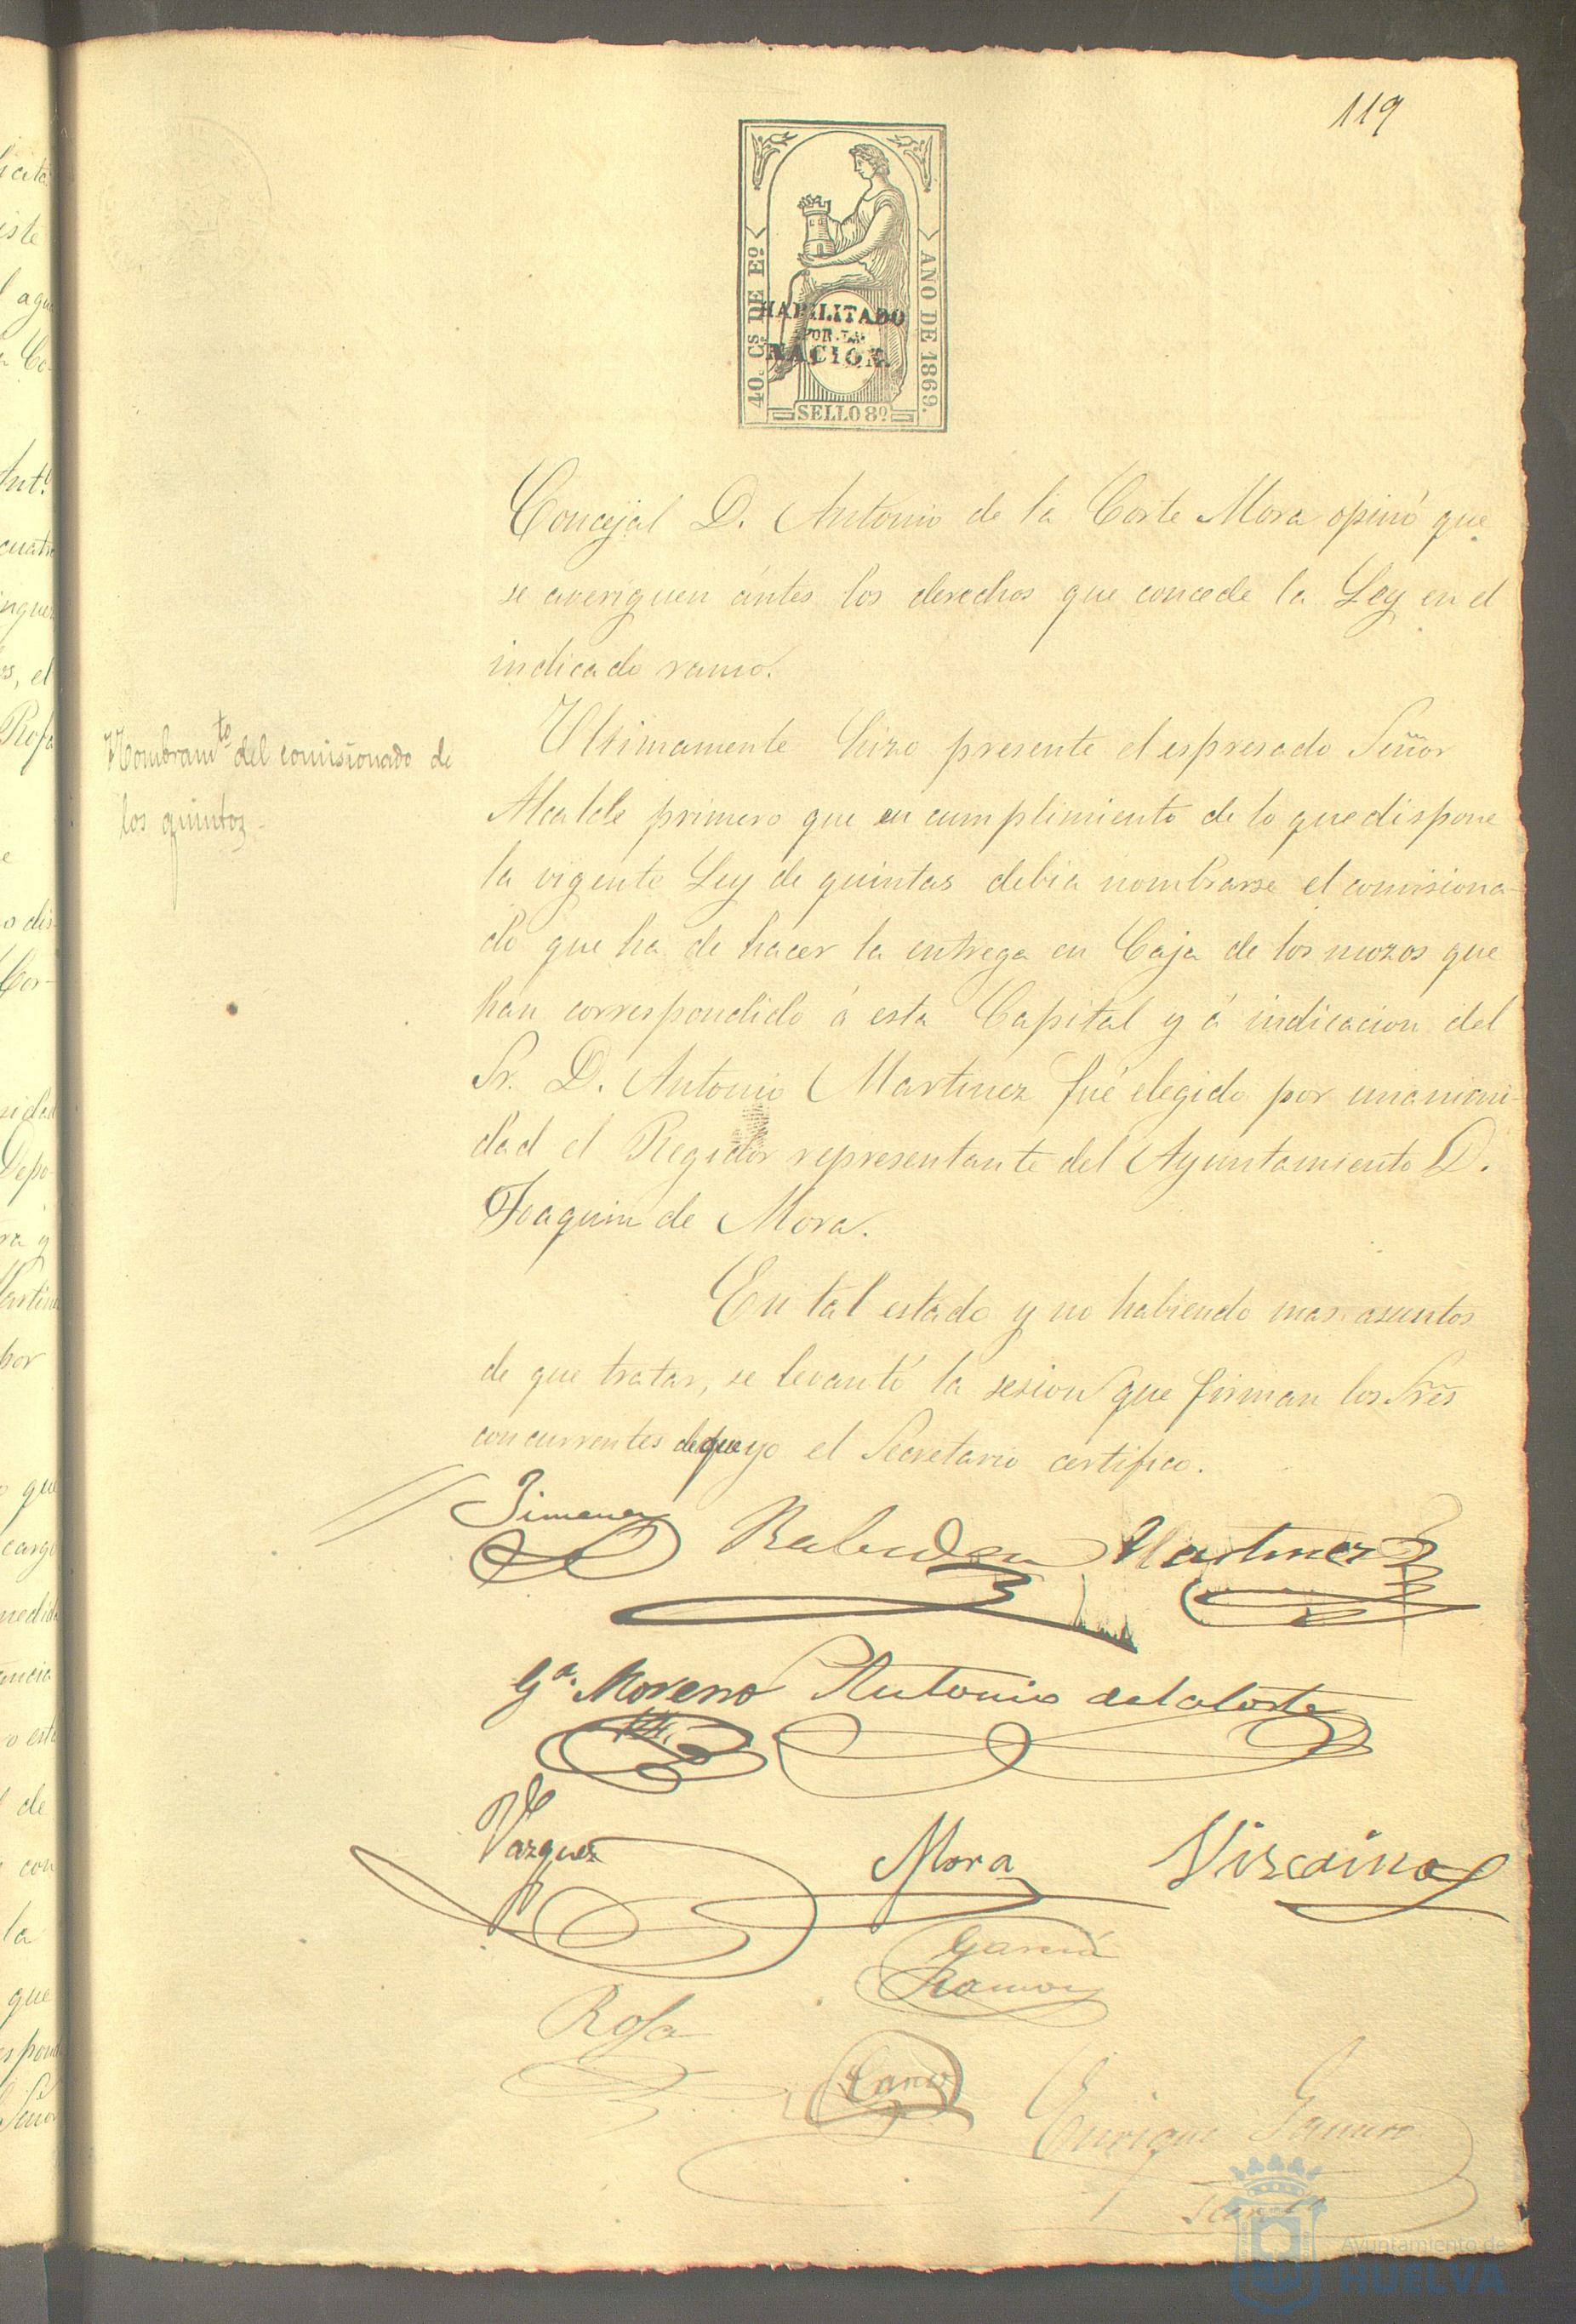 119
40. Cs. DE Eº
AÑO DE 1869.
HABILITADO
POR LA
NACION.
SELLO 8º
Concejal D. Antonio de la Corte Mora opinó que
se averiguen ántes los derechos que concede la Ley en el
indicado ramo.
Nombramto. del comisionado de
los quintos.
Ultimamente hizo presente el espresado Señor
Alcalde primero que en cumplimiento de lo que dispone
la vigente Ley de quintas debia nombrarse el comisiona-
do que ha de hacer la entrega en Caja de los mozos que
han correspondido á esta Capital y á indicacion del
Sr. D. Antonio Martinez fué elegido por unanimi-
dad el Regidor representante del Ayuntamiento D.
Joaquin de Mora.
En tal estado y no habiendo mas asuntos
de que tratar, se levantó la sesion que firman los Sres
concurrentes de que yo el Secretario certifico.
Jimenez Martinez
Ga. Moreno Antonio de la Corte
Vazquez Mora Viscaino
Garcia
Ramos
Rosa
Enrique
Ayuntamiento de
HUELVA